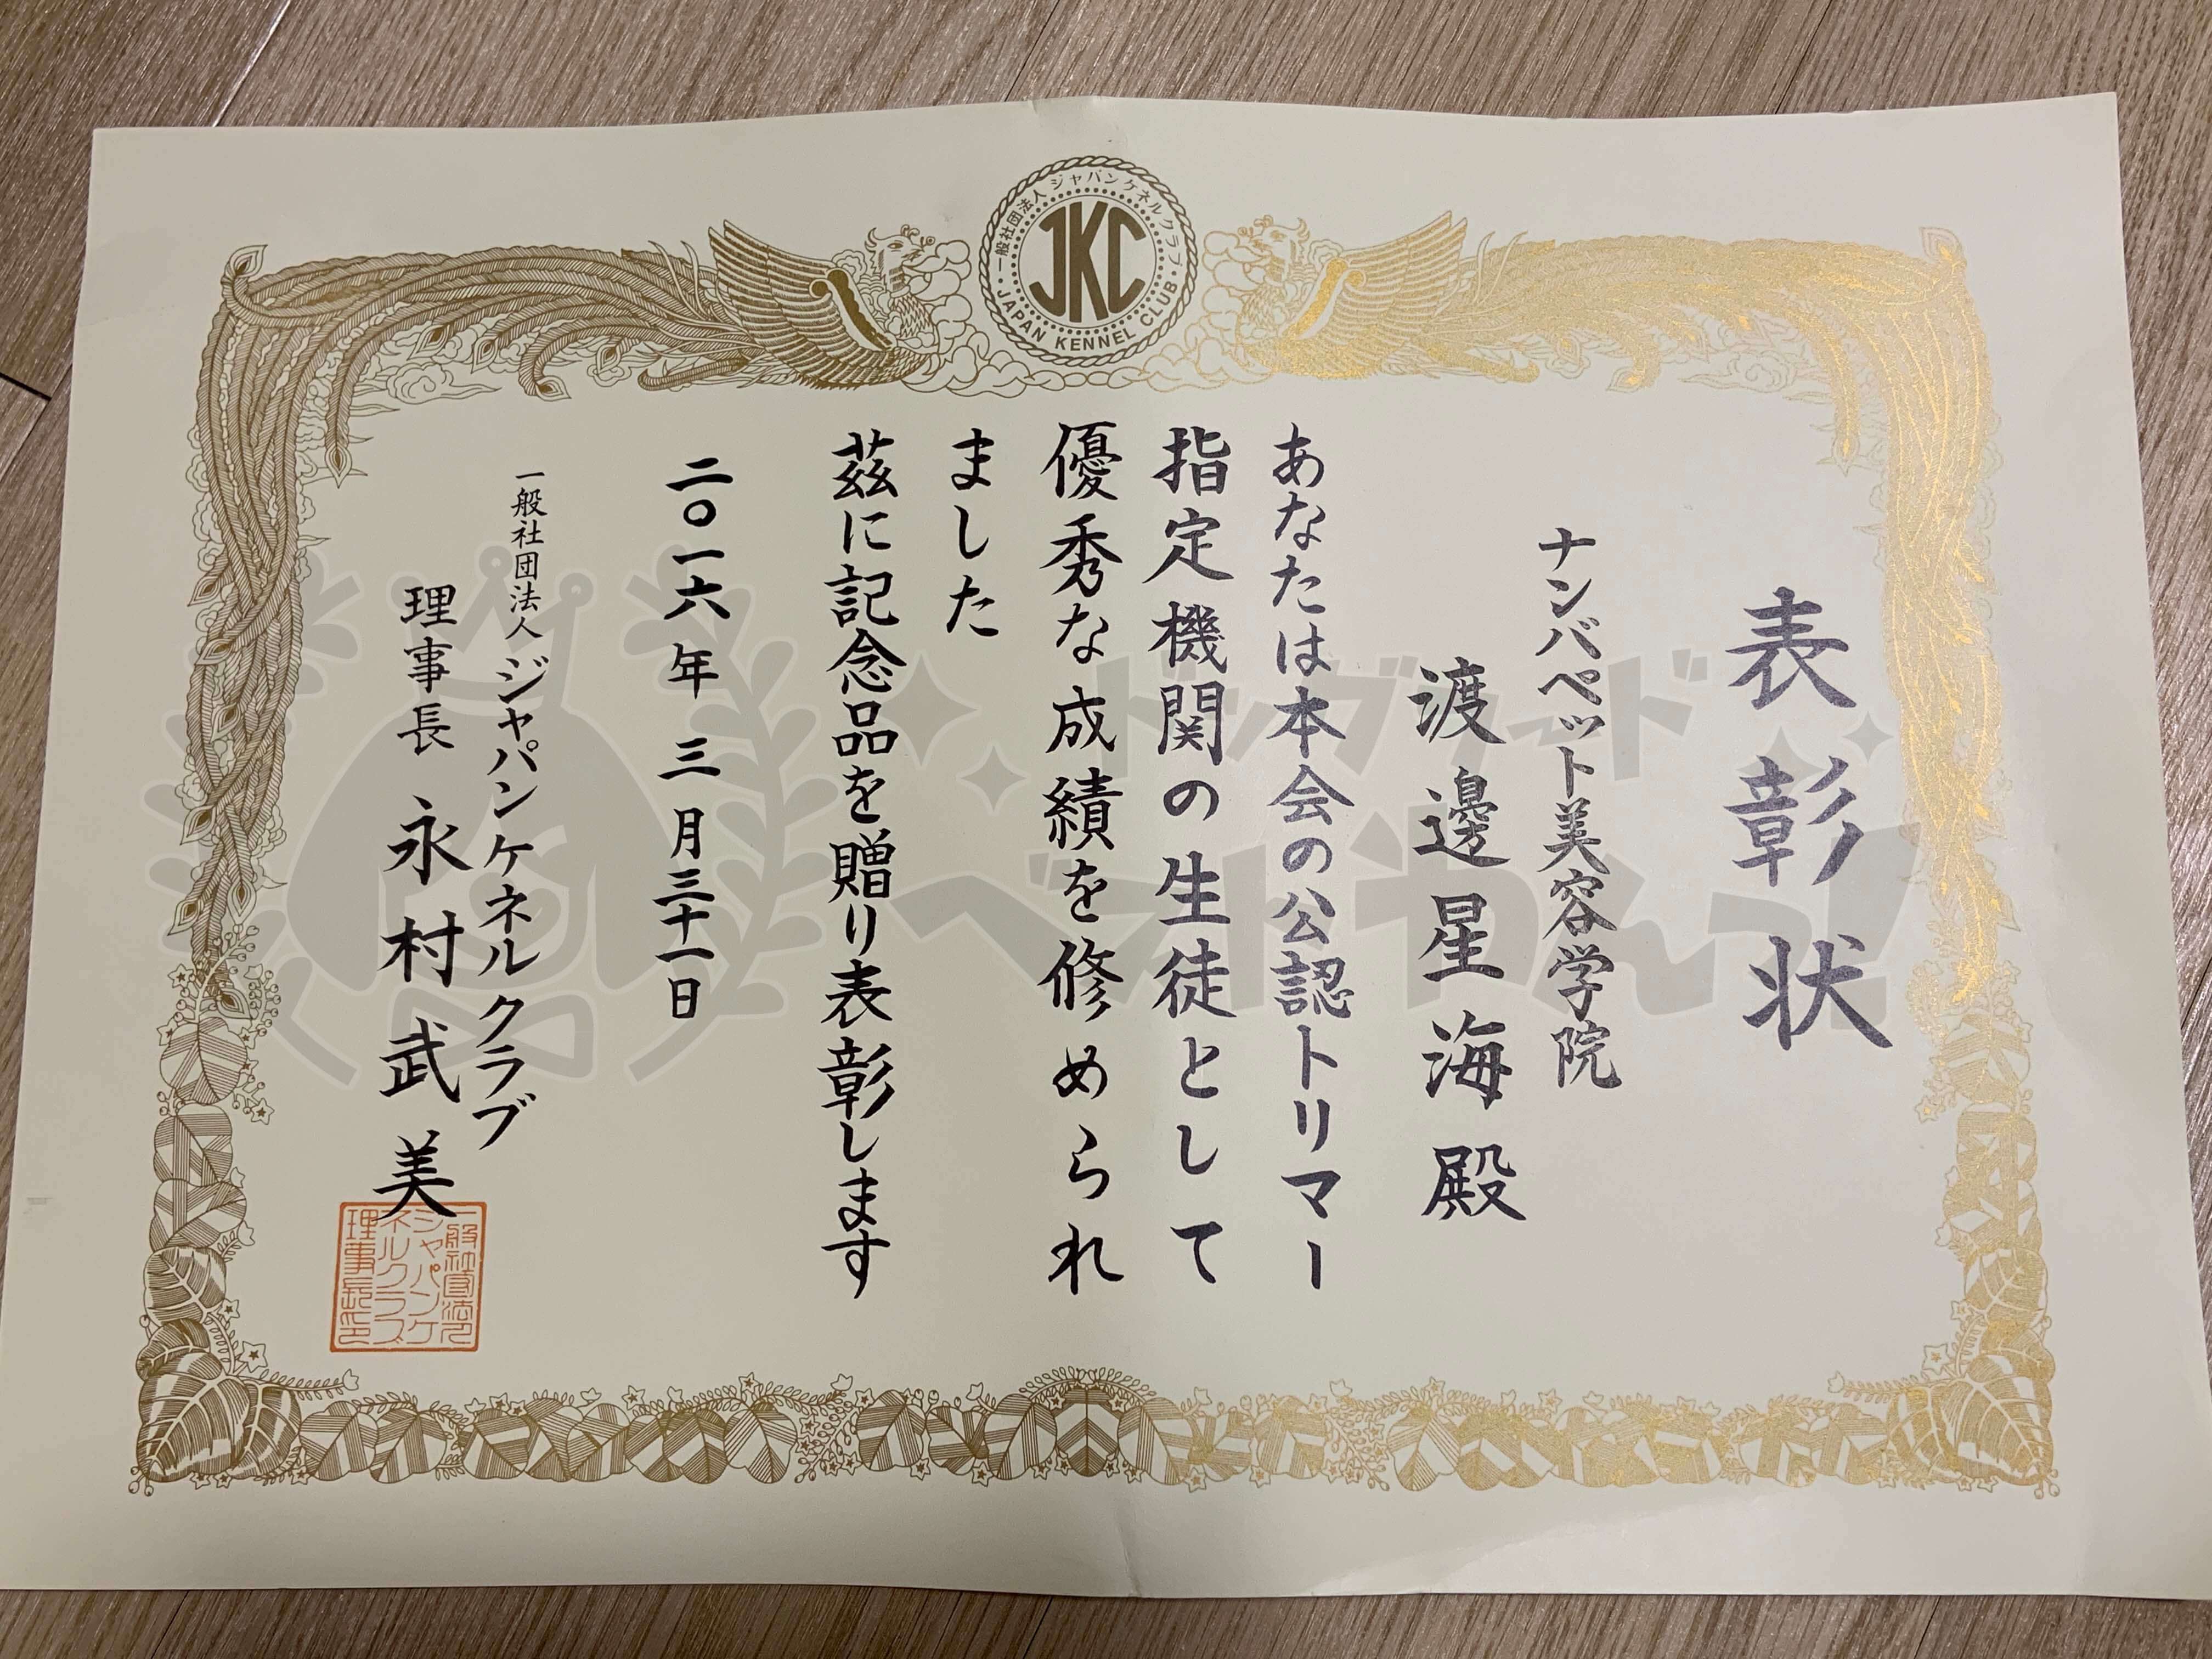 一般社団法人ジャパンケネルクラブ
JKC
JAPAN KENNEL CLUB
表彰状
ナンバペット美容学院
渡邊星海殿
あなたは本会の公認トリマー
指定機関の生徒として
優秀な成績を修められ
ました
茲に記念品を贈り表彰します
二〇一六年三月三十一日
一般社団法人ジャパンケネルクラブ
理事長永村武美
一般社団法人
ジャパンケ
ネルクラブ
理事長印
ドッグフード
ベストわんっ!